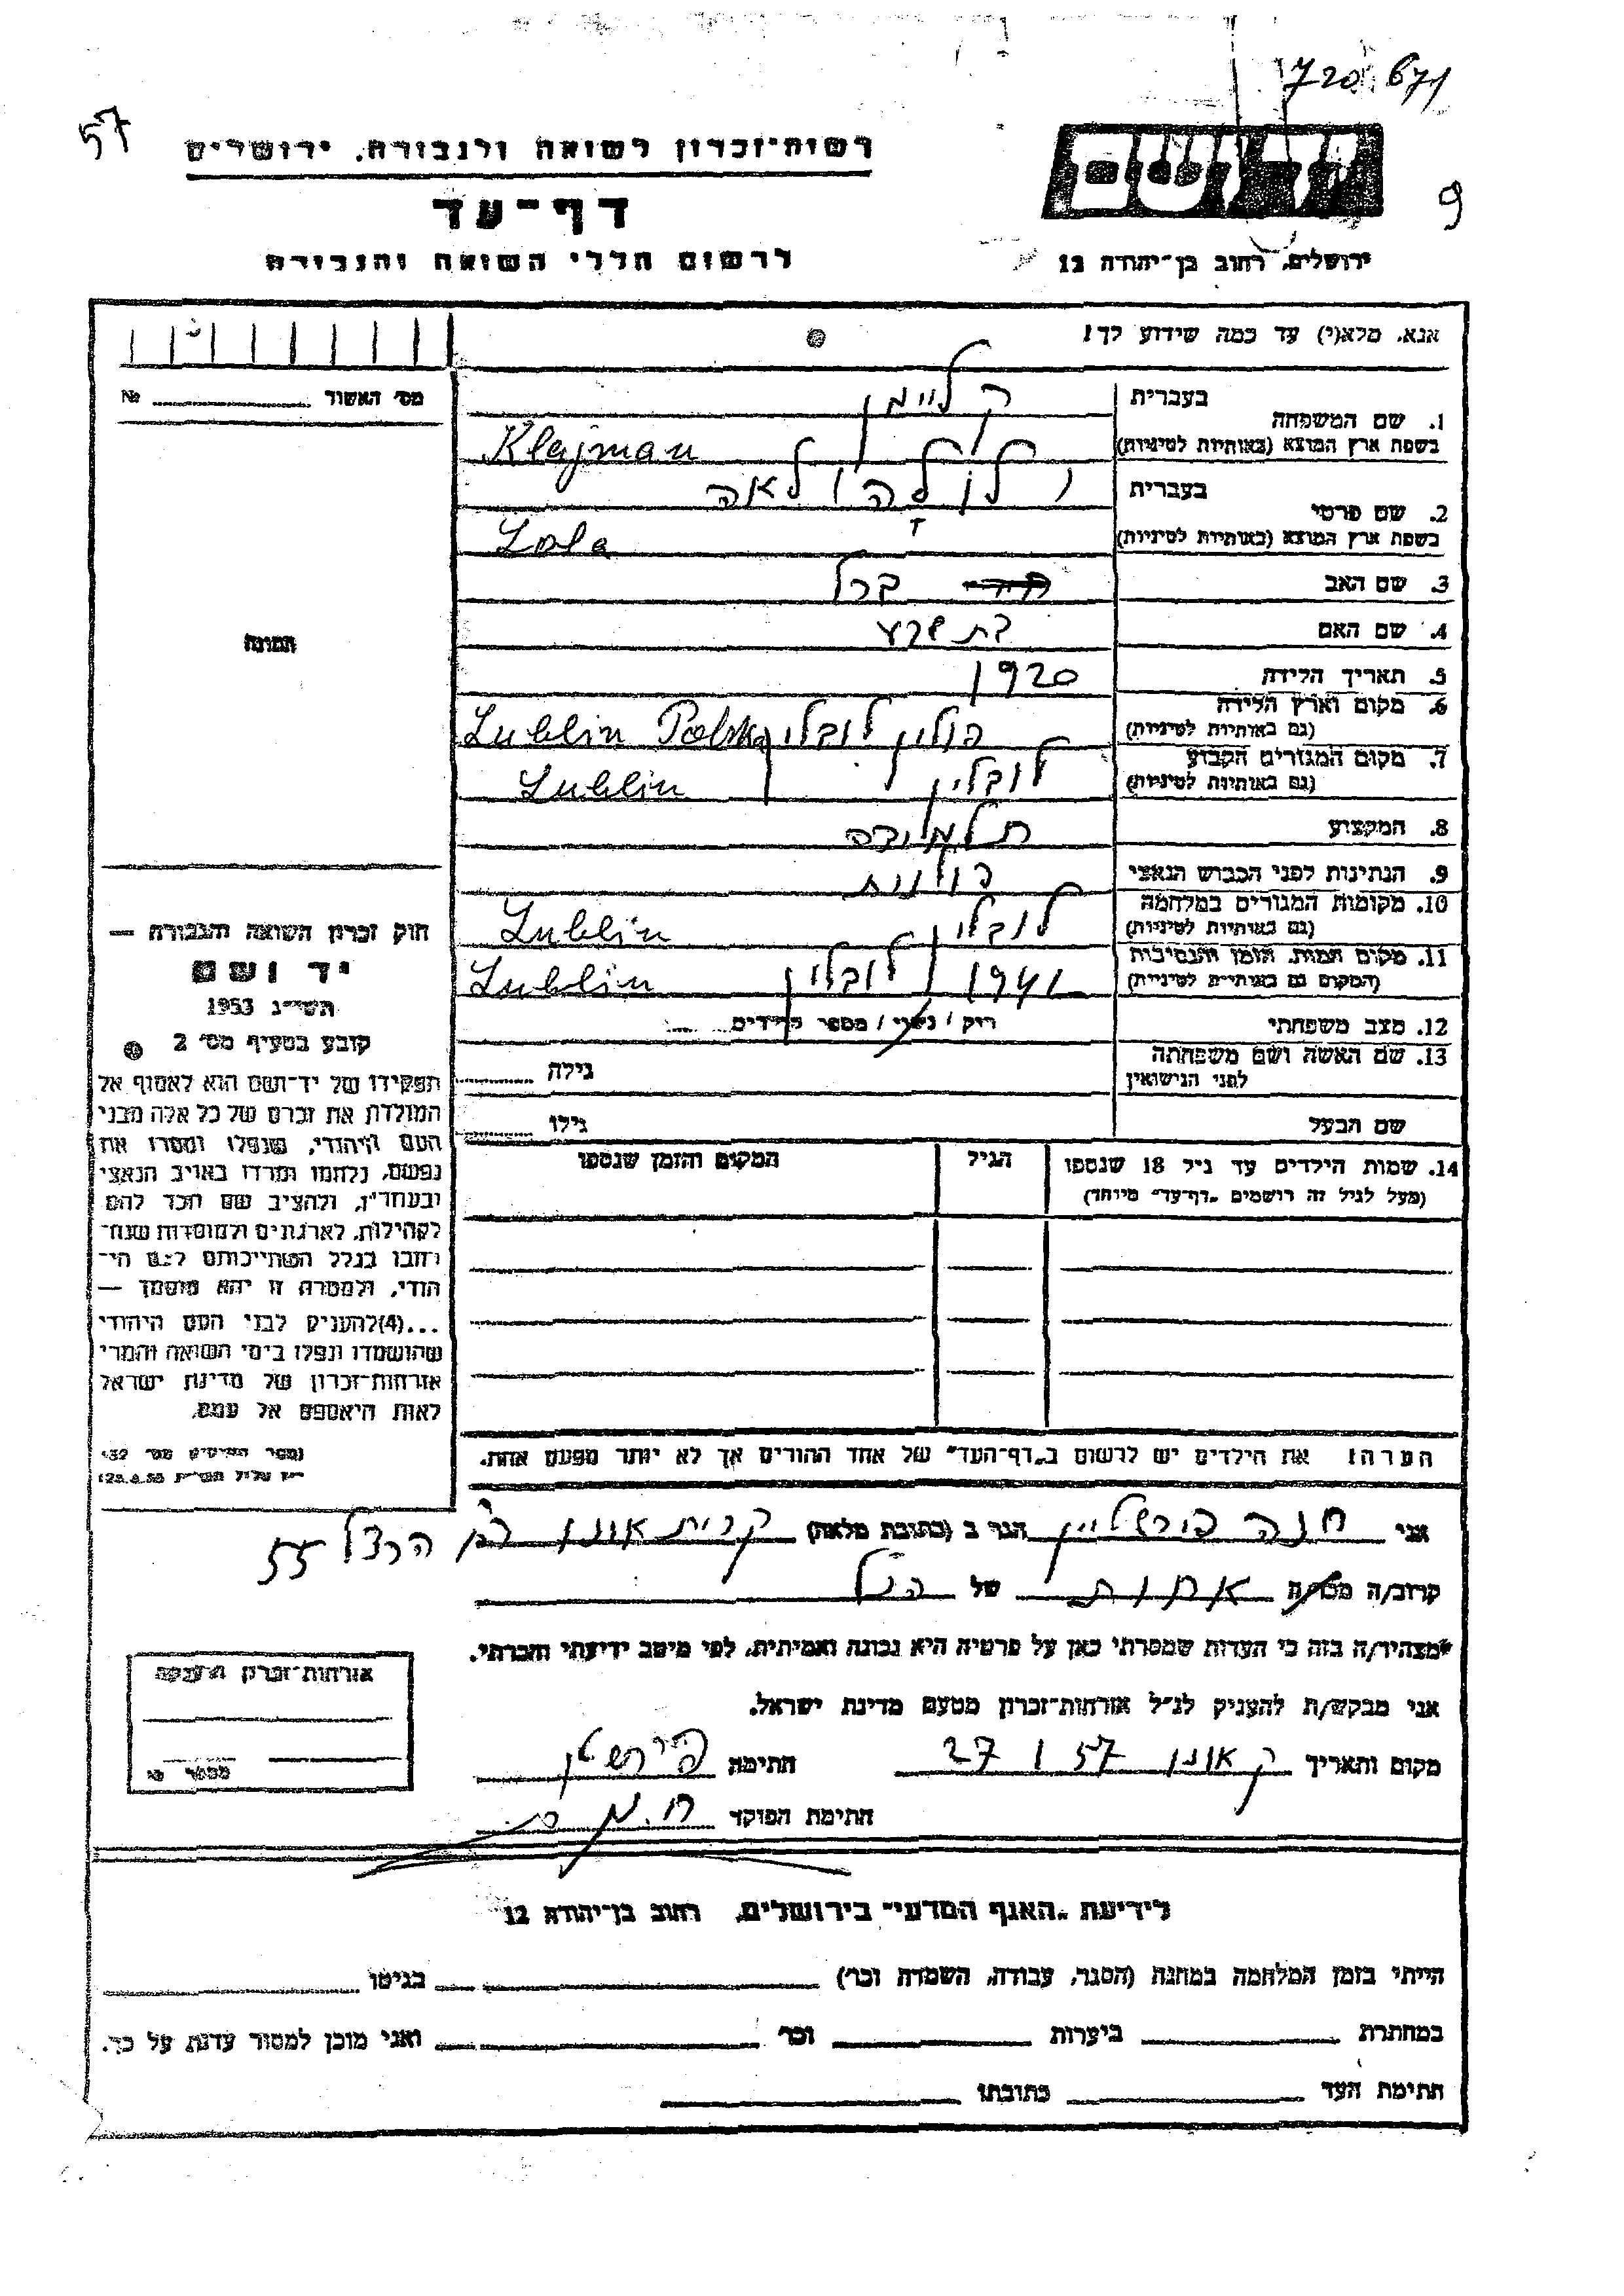 720 671
57
רשות-זכרון לשואה ולגבורה, ירושלים
יד ושם
9
דף-עד
לרשום חללי השואה והגבורה
ירושלים, רחוב בן-יהודה 12
אנא, מלא(י) עד כמה שידוע לך!
מס' האשור № 
1. שם המשפחה
בעברית קליימן
בשפת ארץ המוצא (באותיות לטיניות) Klajman
2. שם פרטי
בעברית לולה / לאה
בשפת ארץ המוצא (באותיות לטיניות) Lola
3. שם האב ברל
4. שם האם בת שבע
התמונה
5. תאריך הלידה 1920
6. מקום וארץ הלידה פולין לובלין Lublin Polska
(גם באותיות לטיניות)
7. מקום המגורים הקבוע לובלין Lublin
(גם באותיות לטיניות)
8. המקצוע תלמידה
9. הנתינות לפני הכבוש הנאצי פולנית
10. מקומות המגורים במלחמה לובלין Lublin
(גם באותיות לטיניות)
11. מקום המות, הזמן והנסיבות 1941 לובלין Lublin
(המקום גם באותיות לטיניות)
12. מצב משפחתי רווק / נשוי / מספר הילדים
13. שם האשה ושם משפחתה
לפני הנישואין
גילה
שם הבעל גילו
14. שמות הילדים עד גיל 18 שנספו הגיל המקום והזמן שנספו
(מעל לגיל זה רושמים "דף-עד" מיוחד)
חוק זכרון השואה והגבורה —
יד ושם
תשי"ג 1953
קובע בסעיף מס' 2
תפקידו של יד-ושם הוא לאסוף אל
המולדת את זכרם של כל אלה מבני
העם היהודי, שנפלו ומסרו את
נפשם, נלחמו ומרדו באויב הנאצי
ובעוזריו, ולהציב שם וזכר להם
לקהילות, לארגונים ולמוסדות שנח־
רבו בגלל השתייכותם לעם הי־
הודי, ולמטרה זו יהא מוסמך —
...(4) להעניק לבני העם היהודי
שהושמדו ונפלו בימי השואה והמרי
אזרחות-זכרון של מדינת ישראל
לאות היאספם אל עמם.
הערה! את הילדים יש לרשום ב"דף-העד" של אחד ההורים אך לא יותר מפעם אחת.
אני חנה הגר ב (כתובת מלאה) קרית אונו רח' הרצל 55
קרוב/ה מכר/ה אחות של הנ"ל
מצהיר/ה בזה כי העדות שמסרתי כאן על פרטיה היא נכונה ואמיתית, לפי מיטב ידיעתי והכרתי.
אני מבקש/ת להעניק לנ"ל אזרחות-זכרון מטעם מדינת ישראל.
מקום ותאריך ק. אונו 27 I 57 חתימה
חתימת הפוקד
אזרחות-זכרון הוענקה
מספר
לידיעת "האגף המדעי" בירושלים, רחוב בן-יהודה 12
הייתי בזמן המלחמה במחנה (הסגר, עבודה, השמדה וכו') בגיטו
במחתרת ביערות וכו' ואני מוכן למסור עדות על כך.
חתימת העד כתובתו